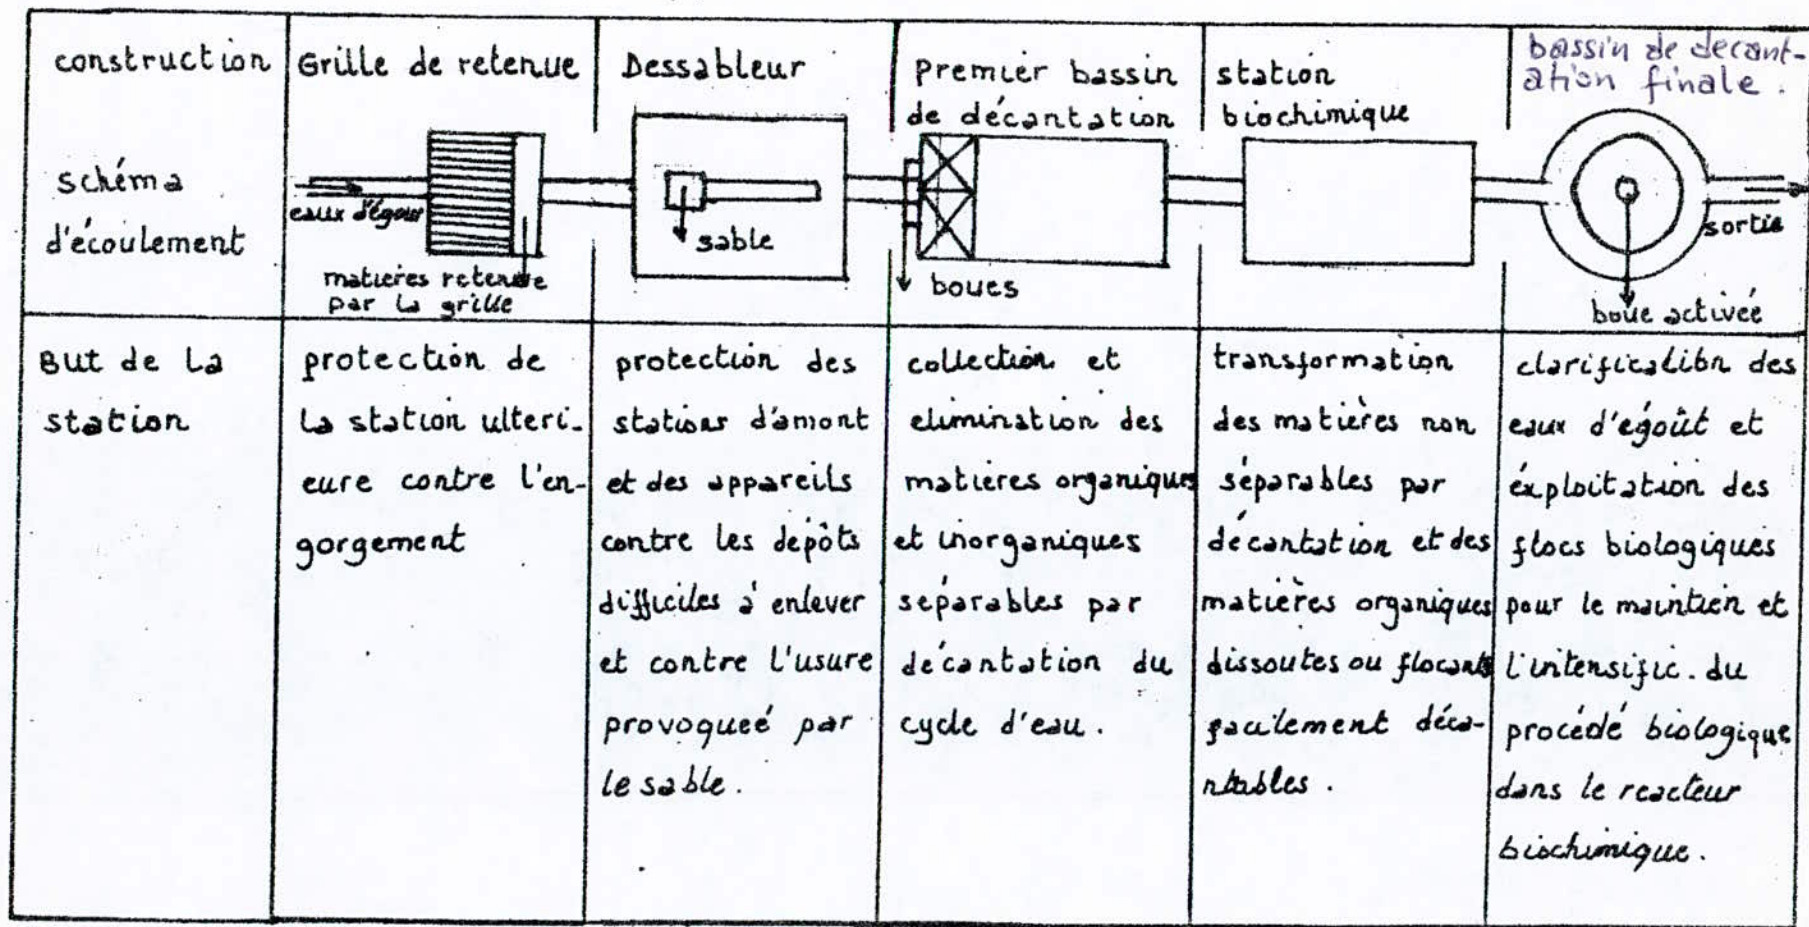 construction
schéma
d'écoulement
Grille de retenue
eaux d'égout
matières retenue
par la grille
Dessableur
sable
premier bassin
de décantation
boues
station
biochimique
bassin de decant-
ation finale.
sortie
boue activéé
But de la
station
protection de
la station ulteri-
eure contre l'en-
gorgement
protection des
stations d'amont
et des appareils
contre les depôts
difficiles à enlever
et contre l'usure
provoqueé par
le sable.
collection et
elimination des
matieres organiques
et inorganiques
séparables par
décantation du
cycle d'eau.
transformation
des matières non
séparables par
décantation et des
matières organiques
dissoutes ou flocants
facilement déca-
ntables.
clarification des
eaux d'égoût et
éxploitation des
flocs biologiques
pour le maintien et
l'intensific. du
procédé biologique
dans le reacteur
biochimique.